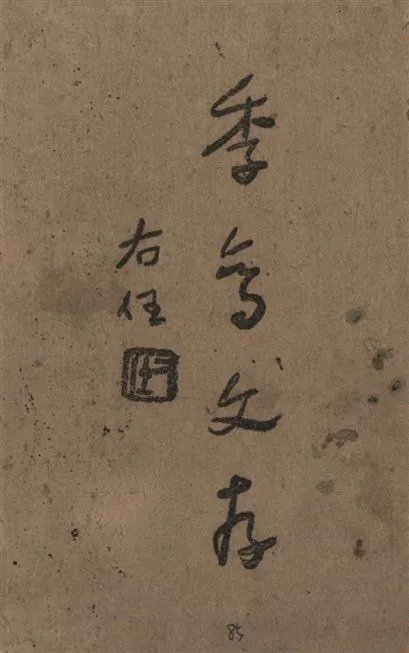 季鸞文存
右任
85